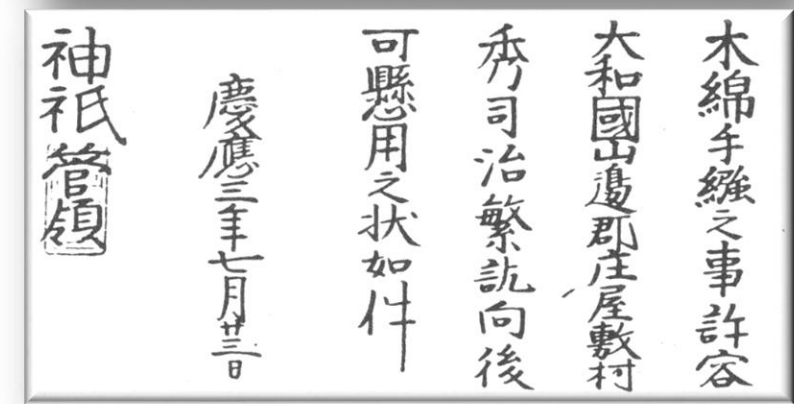 木綿手繦之事許容
大和國山邉郡庄屋敷村
秀司治繁訖向後
可懸用之状如件
慶應三年七月廿三日
神祇管領